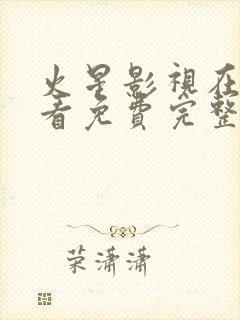 火星影視在
看免費完整
荣潇潇